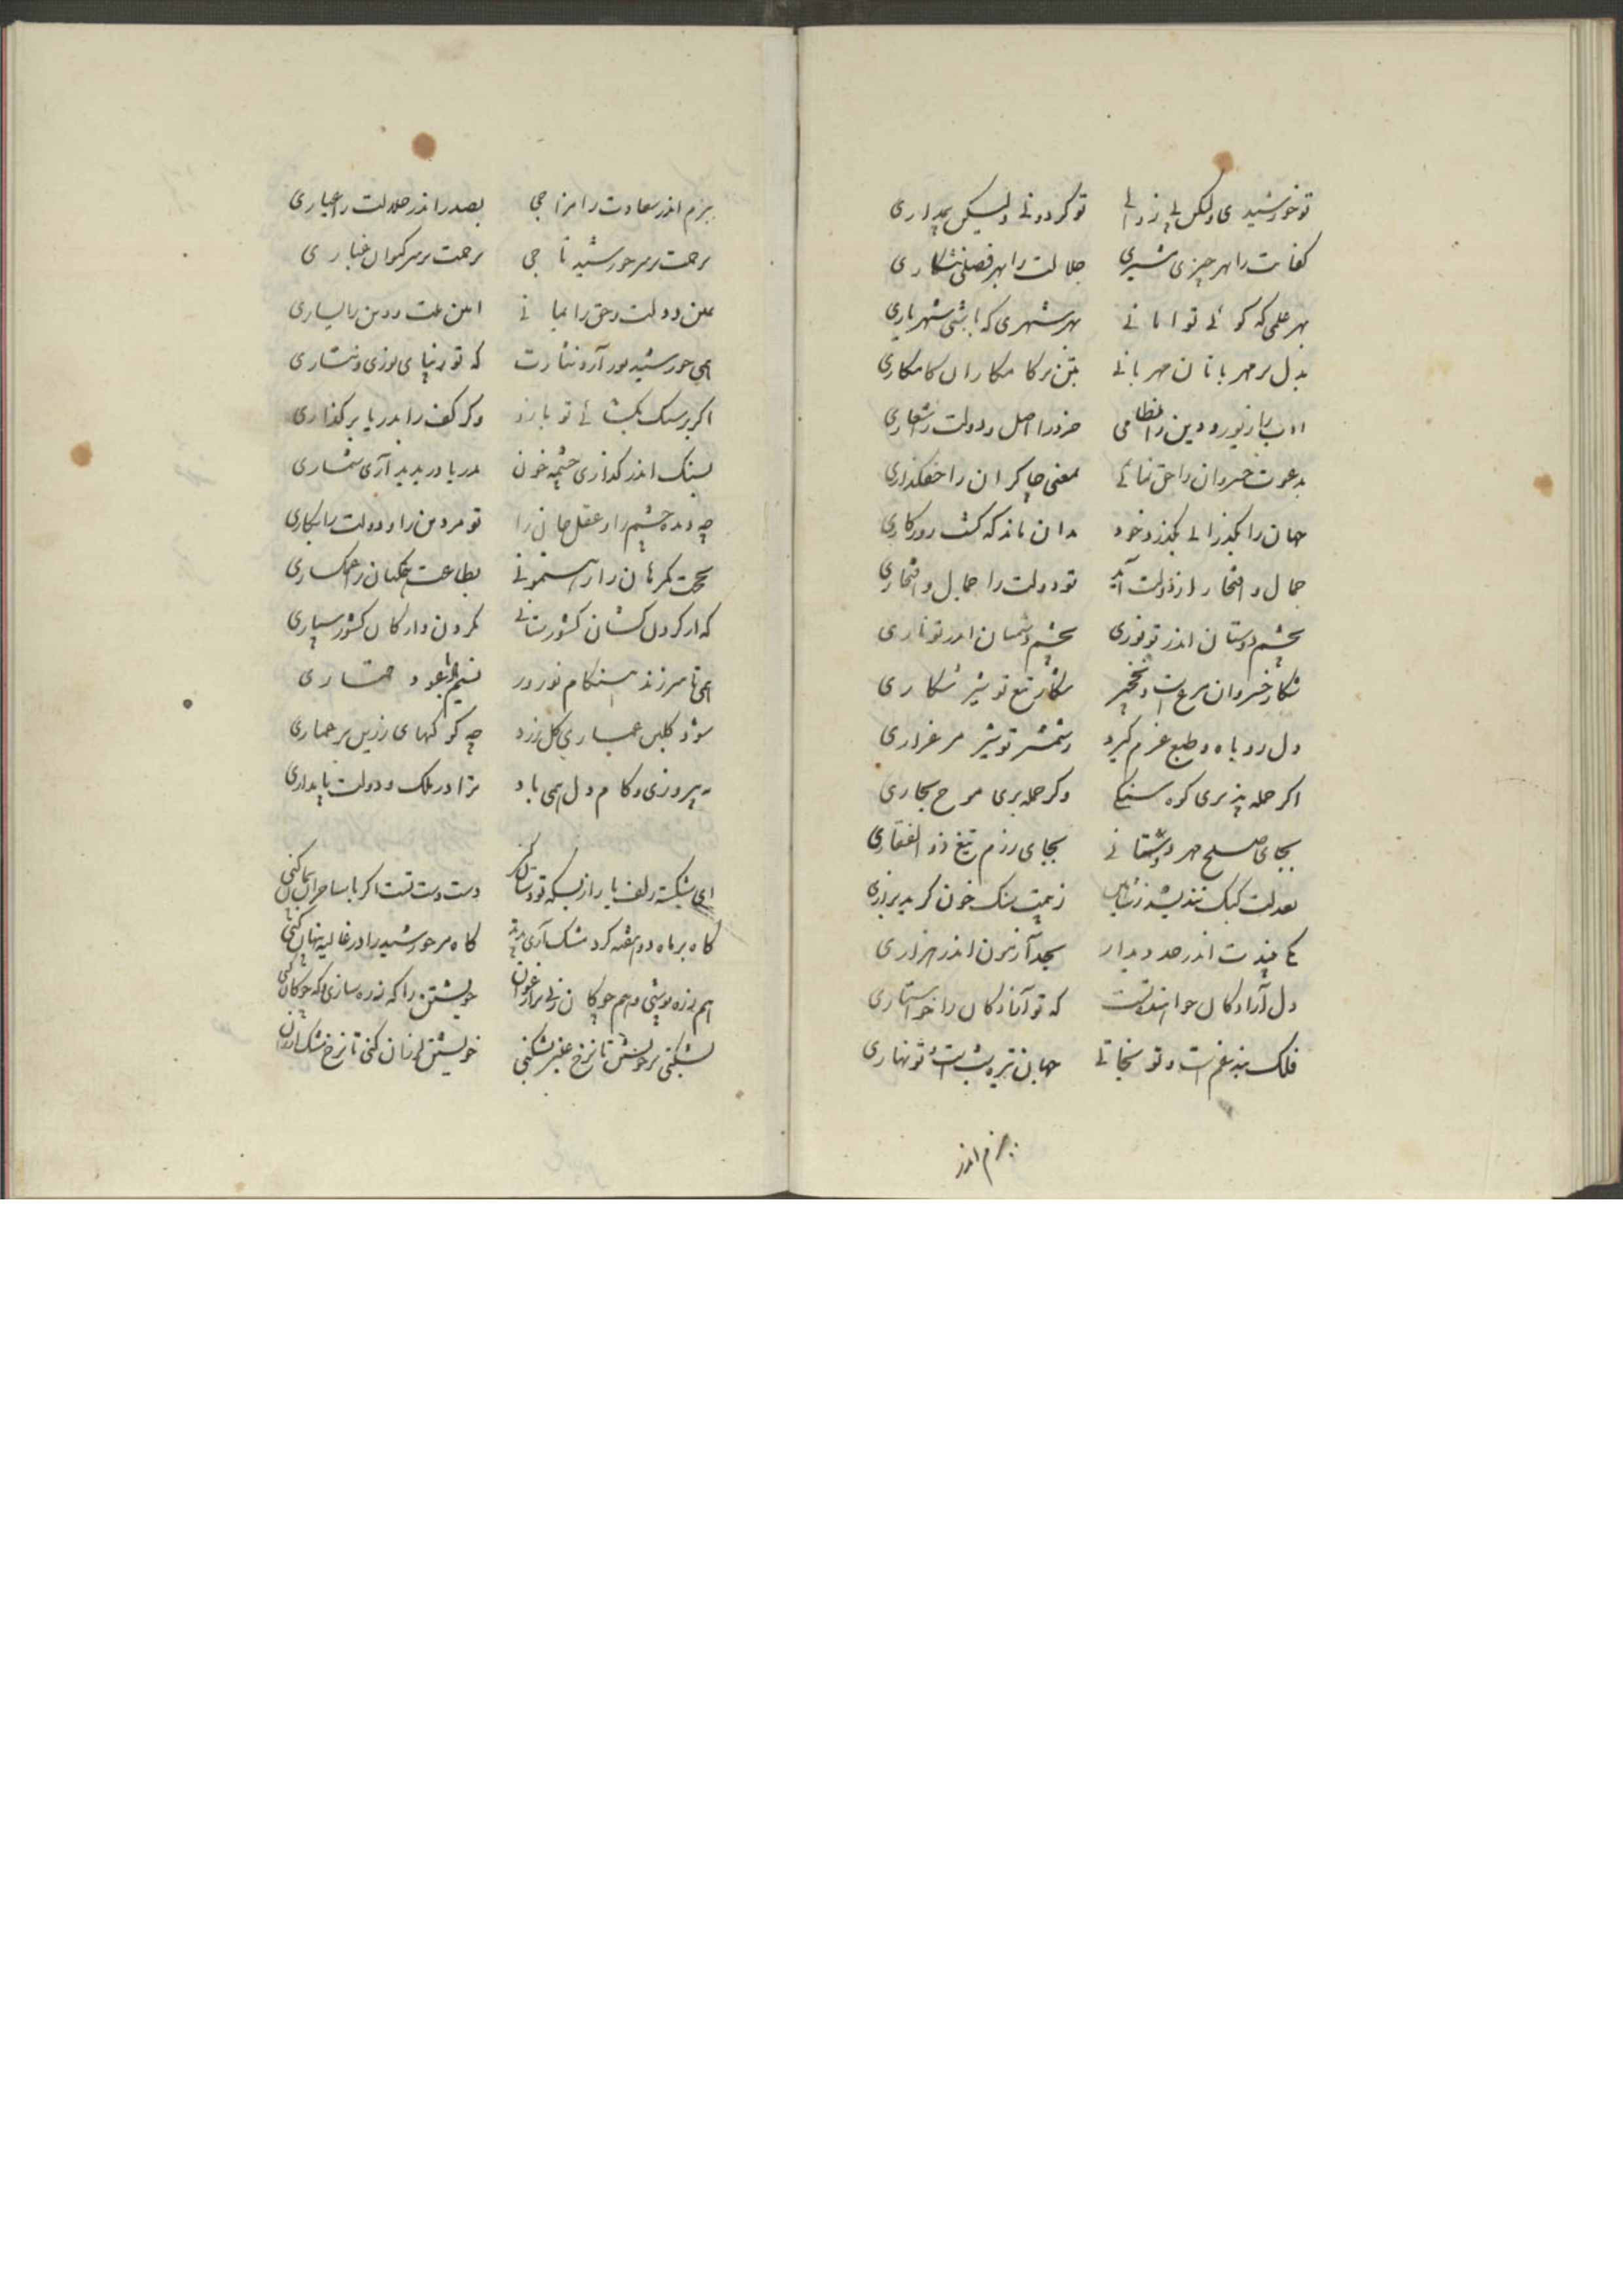 تو خورشیدی ولکن بی زوالی تو کردونی ولیکن پداری
کفایت را بهر چیزی مشیری جلالت را بهر فصلی شکاری
بهر علمی که کوئی تو امانی بهر شهری که باشی شهریاری
بدل بر مهربانان مهربانی بتن بر کامکاران کامکاری
ادب را زیور و دین را نظامی خرد را اصل و دولت را شعاری
بدعوت خسروان را حق نمائی بمعنی چاکران را حقکذاری
جهان را بکذرانی بکذرد خود بدان ماند که کشت روزکاری
جمال و افتخار از دولت آید تو دولت را جمال و افتخاری
بچشم دوستان اندر تو نوری بچشم دشمنان اندر تو ناری
شکار خسروان مرغست و نخچیر شکار تیغ تو شیر شکاری
دل روباه و طبع غرم کیرد ز شمشیر تو شیر مرغزاری
اکر حمله پذیری کوه سنکی وکر حمله بری موج بحاری
بجای صلح مهر بجای رزم تیغ ذوالفقاری
بعدلت کبک نندیشد ز شاهین ز هیبت سنک خون کرید بزاری
یکی فردت اندر حد دیدار بحد آزمون اندر هزاری
دل آزادکان خواهنده تست که تو آزادکان را خواستاری
فلک بند غمست و تو نجاتی جهان تیره شبست و تو نهاری
بزم اندر
بزم اندر سعادت را مزاجی بصدر اندر جلالت را عیاری
برحمت بر سر خورشید تاجی برحمت بر سر کیوان غباری
یمین دولت و حق را یمانی امین ملت و دین را یساری
همی خورشید نور آرد نثارت که تو دنیای نوری و نثاری
اکر بر سنک بکشائی تو بازو وکر کف را بدریا بر کذاری
بسنک اندر کذاری چشمه خون بدریا در پدید آری شماری
چو دیده چشم را و عقل جان را تو مر دین را و دولت را بکاری
بحجت کمرهان را رهنمونی بطاعت غمکنان را غمکساری
که از کردن کشان کشور ستانی بکردن دارکان کشور سپاری
همی تا مرزند هنکام نوروز نسیم
شود کلبن عماری کل زرد چو کوکبهای زرین بر عماری
به پیروزی و کام دل همی باد ترا در ملک و دولت پایداری
ای شکسته زلف یار از بسکه تو دستان کنی دست دست تست اکر با ساحران پیمان کنی
کاه بر ماه دو هفته کرد مشک آری پدید کاه مر خورشید را در غالیه پنهان کنی
هم زره پوشی و هم چوکان زنی بر ارغوان خویشتن را که زره سازی و که چوکان کنی
بشکنی بر خویشتن تا نرخ عنبر بشکنی خویشتن لرزان کنی تا نرخ مشک ارزان کنی